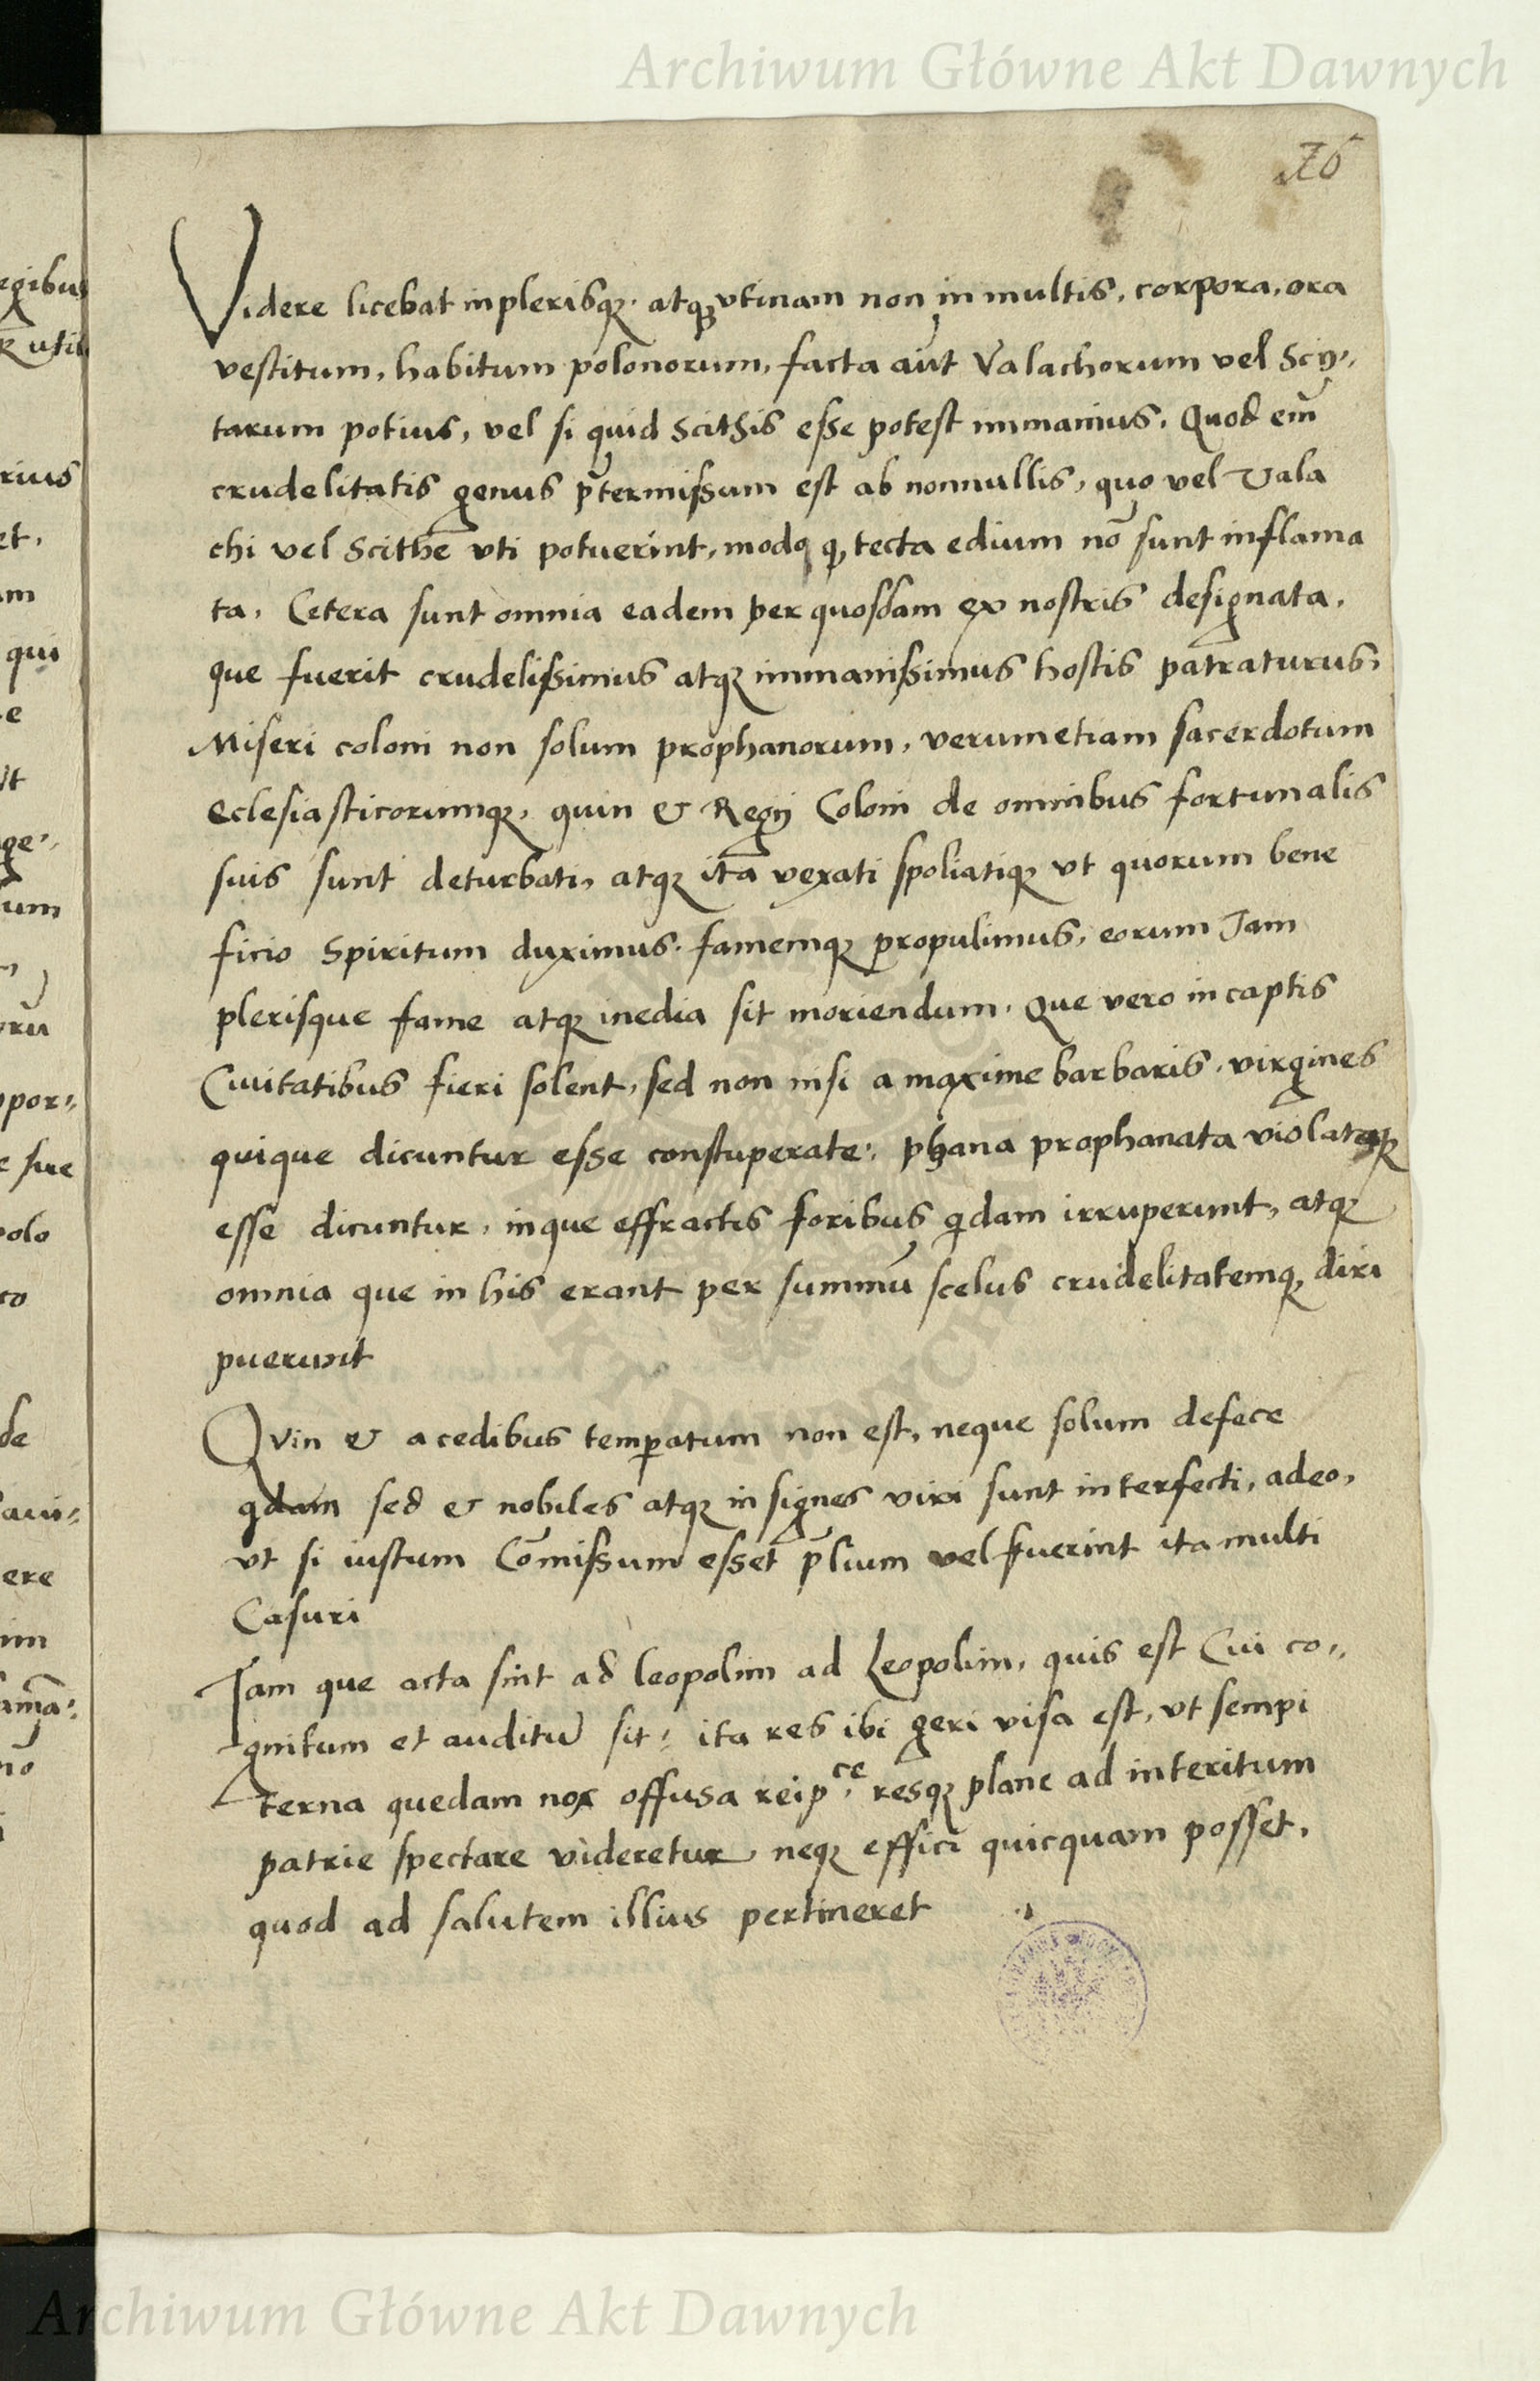 Archiwum Główne Akt Dawnych
76
Videre licebat in plerisq₃. atq₃ vtinam non in multis, corpora, ora
vestitum, habitum polonorum, facta aūt Valachorum vel Scy-
tarum potius, vel si quid Scithis esse potest immanius. Quod em̄
crudelitatis genus p̄termissum est ab nonnullis, quo vel Vala
chi vel Scithe vti potuerint, modo q, tecta edium nō sunt inflama
ta. Cetera sunt omnia eadem per quosdam ex nostris designata.
que fuerit crudelissimus atq₃ immanissimus hostis patraturus,
Miseri coloni non solum prophanorum, verumetiam sacerdotum
Eclesiasticorumq₃. quin & Regij Coloni de omnibus fortunalis
suis sunt deturbati, atq₃ ita vexati spoliatiq₃ vt quorum bene
ficio Spiritum duximus. famemq₃ propulimus, eorum Jam
plerisque fame atq₃ inedia sit moriendum. Que vero in captis
Civitatibus fieri solent, sed non nisi a maxime barbaris. virgines
quique dicuntur esse constuperate: phana prophanata violataq₃
esse dicuntur, inque effractis foribus qdam irruperunt, atq₃
omnia que in his erant per summū scelus crudelitatemq₃ diri
puerunt
Qvin & a cedibus temperatum non est, neque solum defece
qdam sed & nobiles atq₃ insignes viri sunt interfecti, adeo,
vt si iustum Cōmissum esset p̄lium vel fuerint ita multi
Casuri
Jam que acta sint ad leopolim ad Leopolim, quis est Cui co-
gnitum et auditū sit: ita res ibi geri visa est, vt sempi
terna quedam nox offusa reip^ce, resq₃ plane ad interitum
patrie spectare videretur, neq₃ effici quicquam posset,
quod ad salutem illius pertineret
Archiwum Główne Akt Dawnych